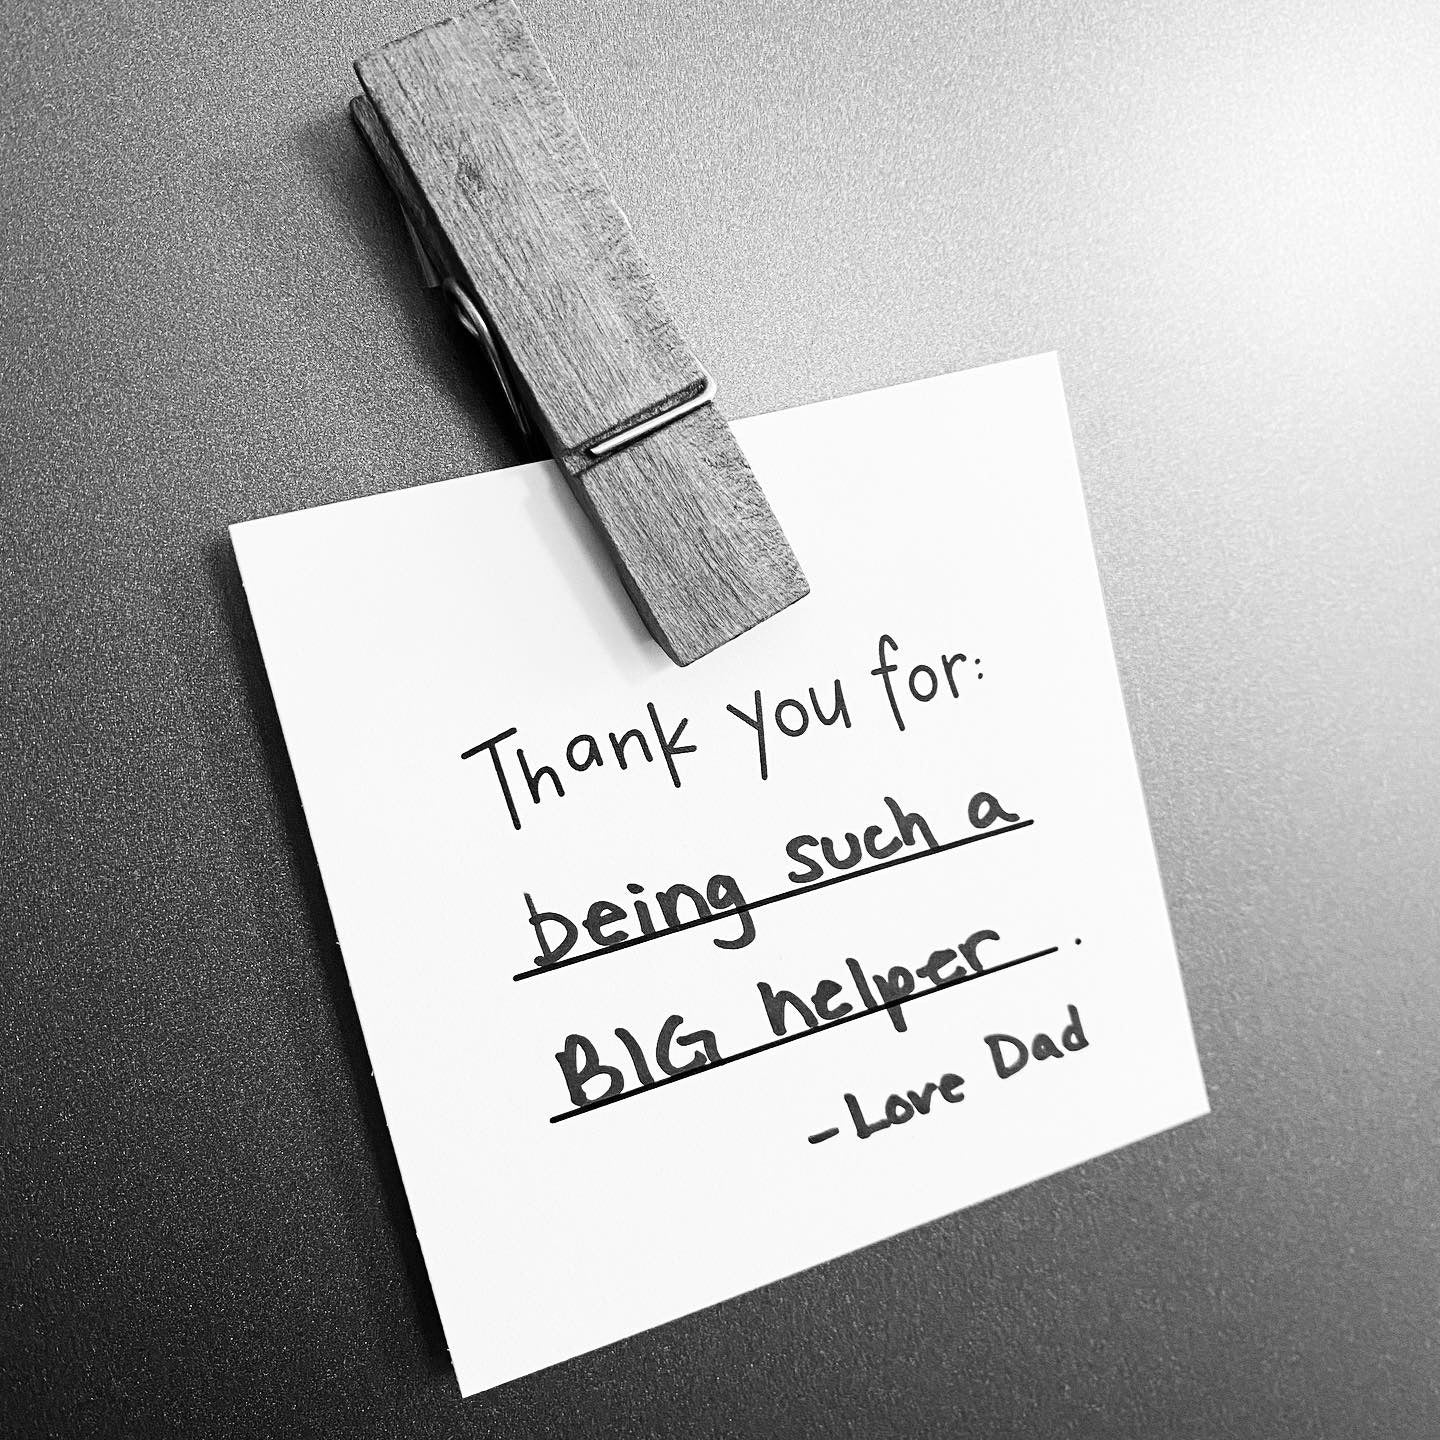 Thank you for:
being such a
BIG helper.
-Love Dad